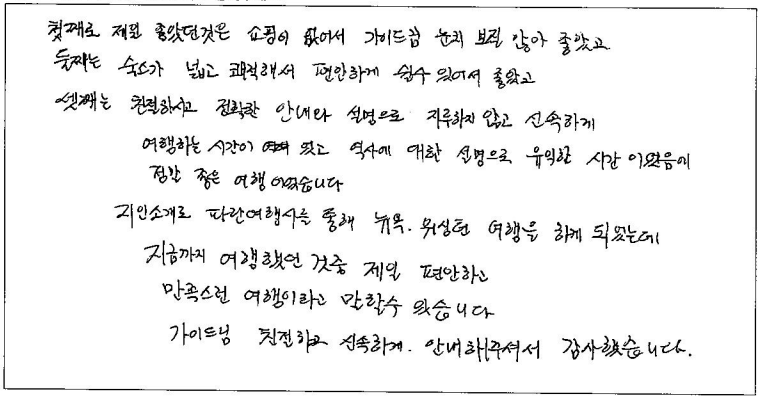 첫째로 제일 좋았던것은 쇼핑이 없어서 가이드님 눈치 보질 않아 좋았고
둘째는 숙소가 넓고 쾌적해서 편안하게 쉴수 있어서 좋았고
셋째는 친절하시고 정확한 안내와 설명으로 지루하지 않고 신속하게
여행하는 시간이 되었고 역사에 대한 설명으로 유익한 시간 이었음에
정말 좋은 여행 이었습니다
지인소개로 파란여행사를 통해 뉴욕. 워싱턴 여행을 하게 되었는데
지금까지 여행했던 것중 제일 편안하고
만족스런 여행이라고 말할수 있습니다
가이드님 친전하고 신속하게. 안내해주셔서 감사했습니다.